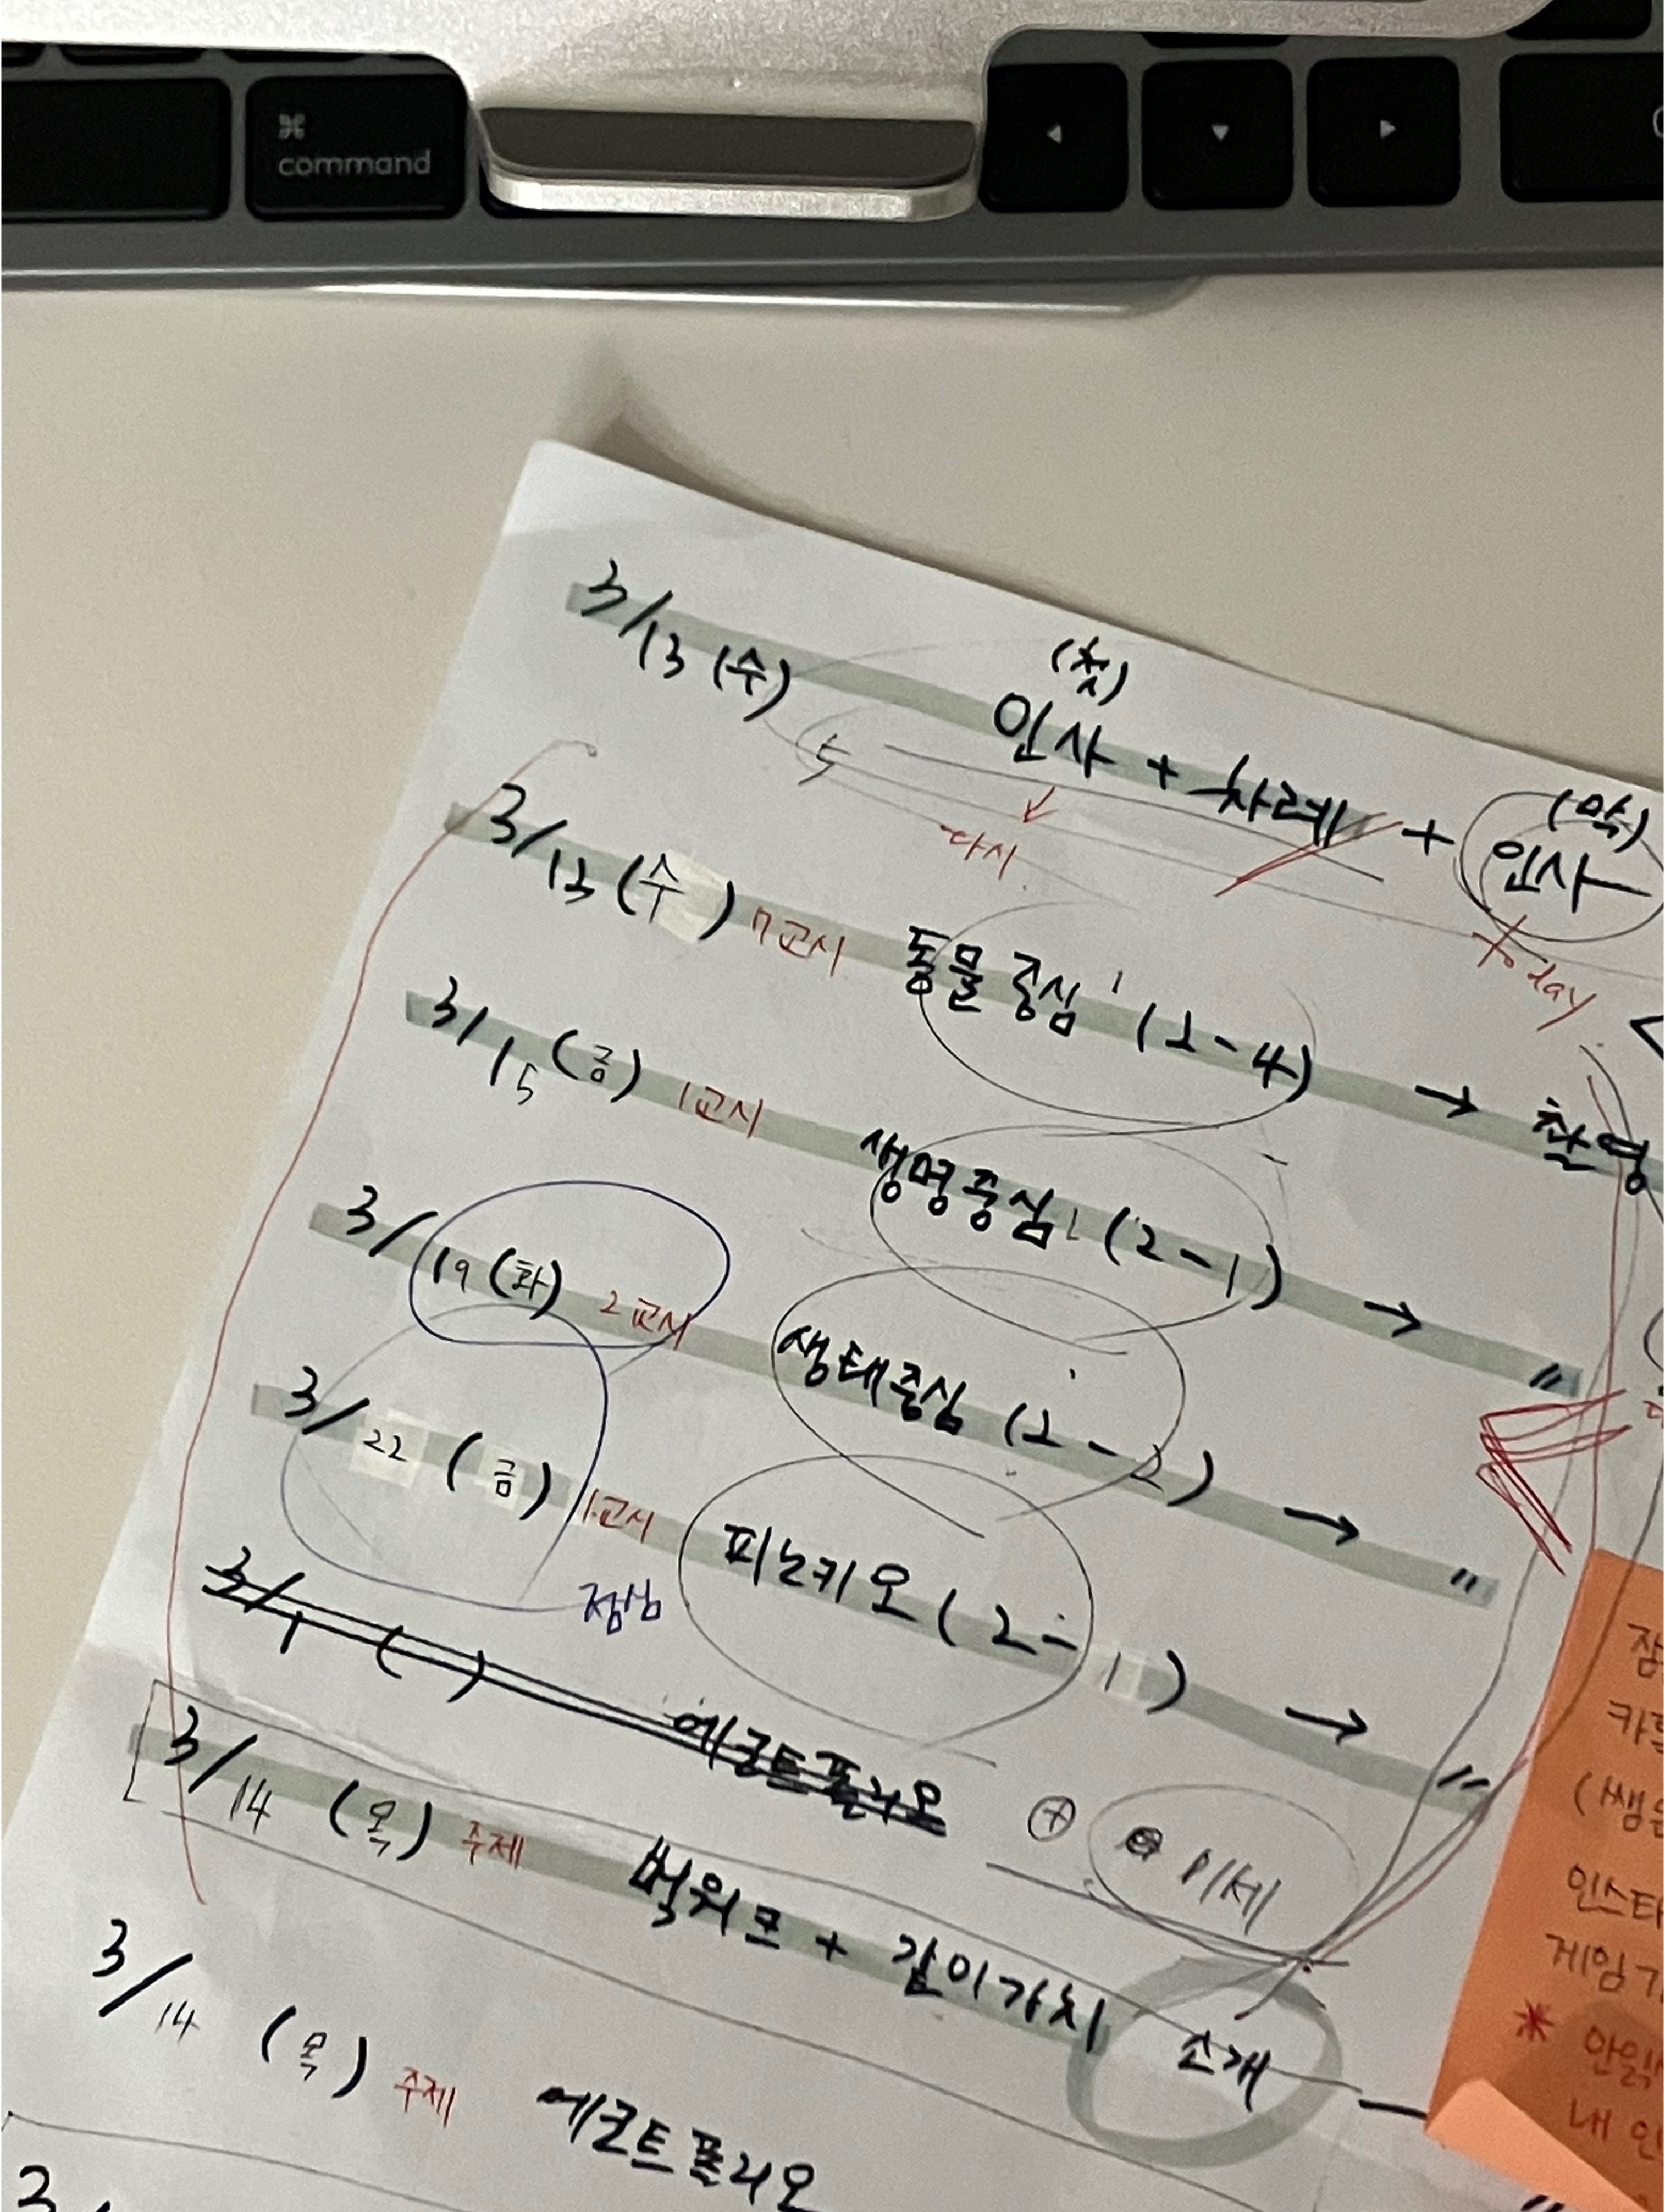 ⌘
command
3/13 (수) (첫) 인사 + 차례 + (막) 인사
다시
today
3/13 (수) 7교시 동물중심 (2-4) → 촬영
3/15 (금) 1교시 생명중심 (2-1) → "
3/19 (화) 2교시 생태중심 (2-2) → "
3/22 (금) 1교시 피노키오 (2-1) → "
점심
3/1 ( ) 에코트폴리오
미세
3/14 (목) 주제 벅워모 + 같이가치 소개
3/14 (목) 주제 에코트폴리오
인스타
게임
* 안읽
내 인